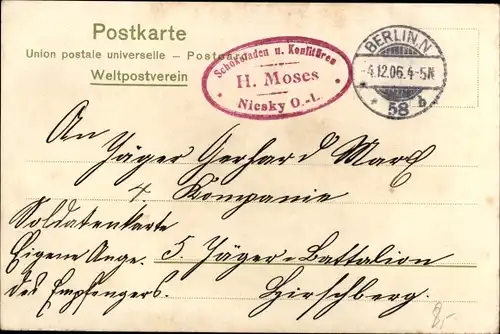 Postkarte
Union postale universelle – Postcard
Weltpostverein
Schokoladen u. Konfitüren
H. Moses
Niesky O.-L.
BERLIN.N
-4.12.06.4-5N
* 58 b
An
Jäger Gerhard Marx
4 Kompanie
Soldatenkarte
Eigene Ange. 5. Jäger-Battalion
des Empfengers. Hirschberg.